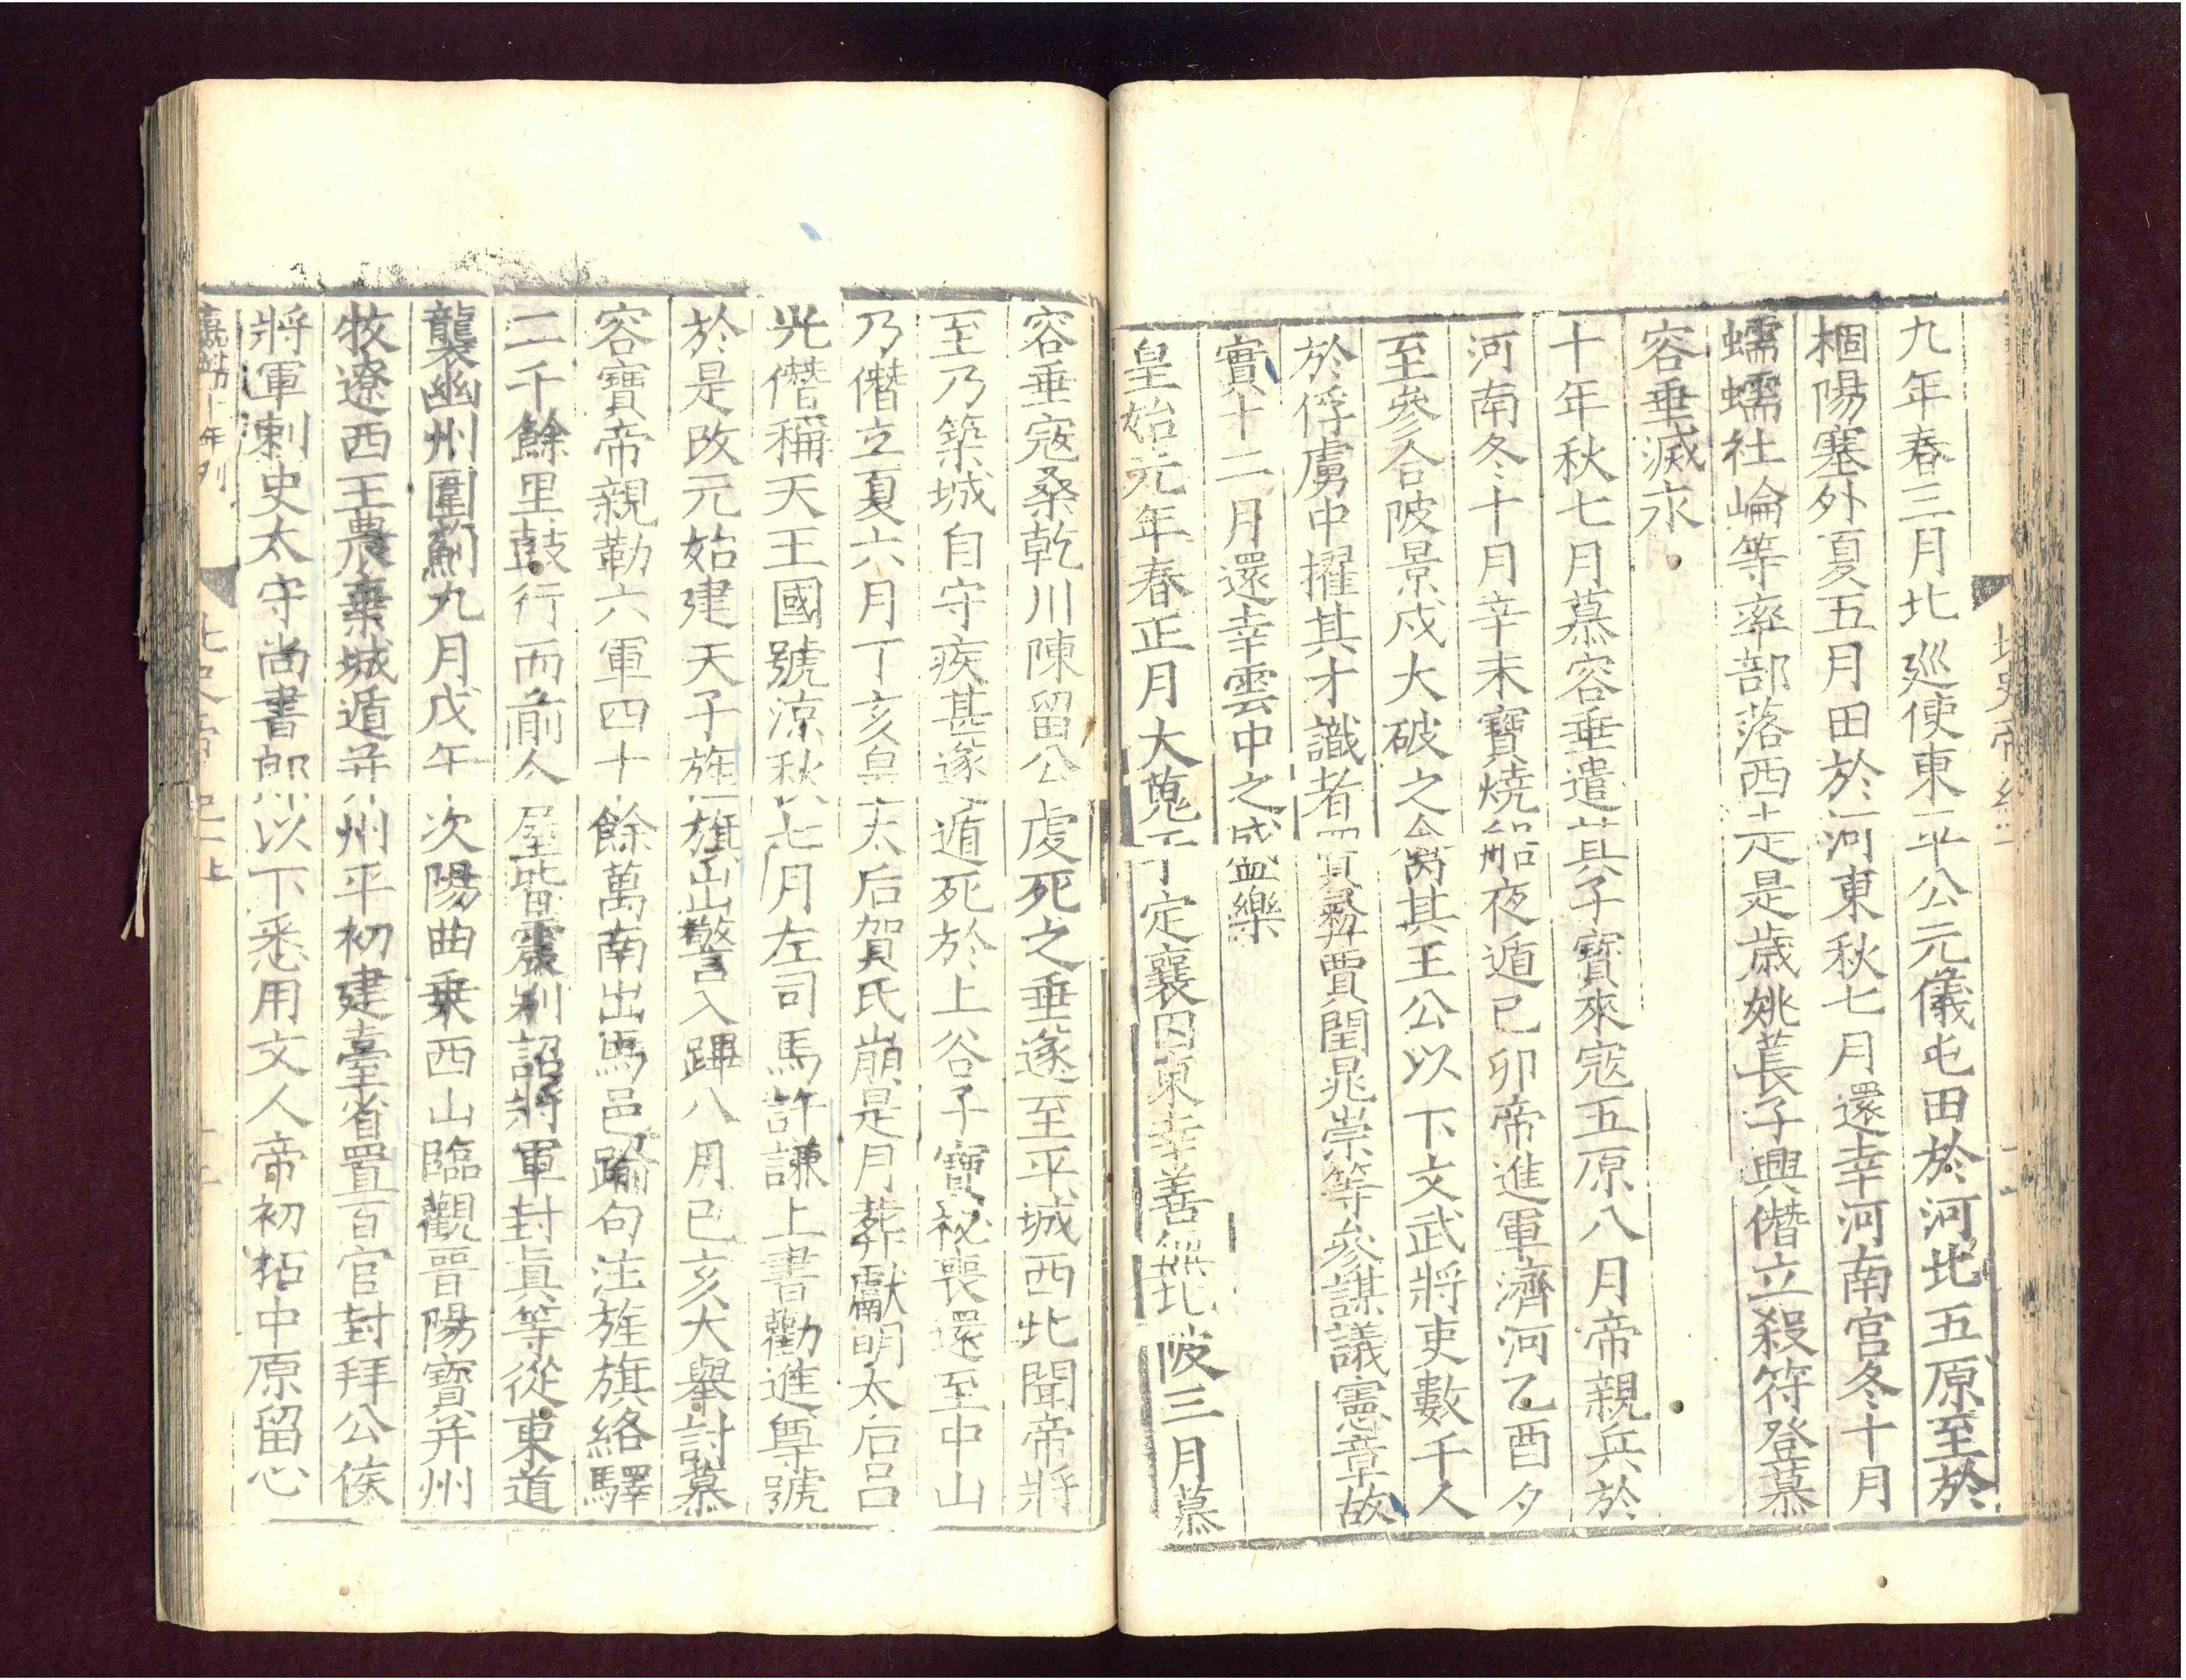 九年春三月北巡使東平公元儀屯田於河北五原至於
棝陽塞外夏五月田於河東秋七月還幸河南宫冬十月
蠕蠕社崘等率部落西走是歳姚萇子興僭立殺符登慕
容垂滅永
十年秋七月慕容垂遣其子寳來寇五原八月帝親兵於
河南冬十月辛未寳燒船夜遁己卯帝進軍濟河乙酉夕
至參合陂景戍大破之禽其王公以下文武將吏數千人
於俘虜中擢其才識者賈彝賈閨晁崇等參謀議憲章故
實十二月還幸雲中之盛樂
皇始元年春正月大蒐于定襄因東幸善無北陂三月慕
容垂寇桑乾川陳留公虔死之垂遂至平城西北聞帝將
至乃築城自守疾甚遂遁死於上谷子寳祕喪還至中山
乃僭立夏六月丁亥皇太后賀氏崩是月葬獻明太后呂
光僭稱天王國號涼秋七月左司馬許謙上書勸進尊號
於是改元始建天子旌旗出警入蹕八月己亥大舉討慕
容寶帝親勒六軍四十餘萬南出馬邑踰句注旌旗絡驛
二千餘里鼓行而前人屋皆震别詔將軍封真等從東道
襲幽州圍薊九月戊午次陽曲乗西山臨觀晉陽寳并州
牧遼西王農棄城遁并州平初建臺省置百官封拜公侯
將軍刺史太守尚書郎以下悉用文人帝初拓中原留心